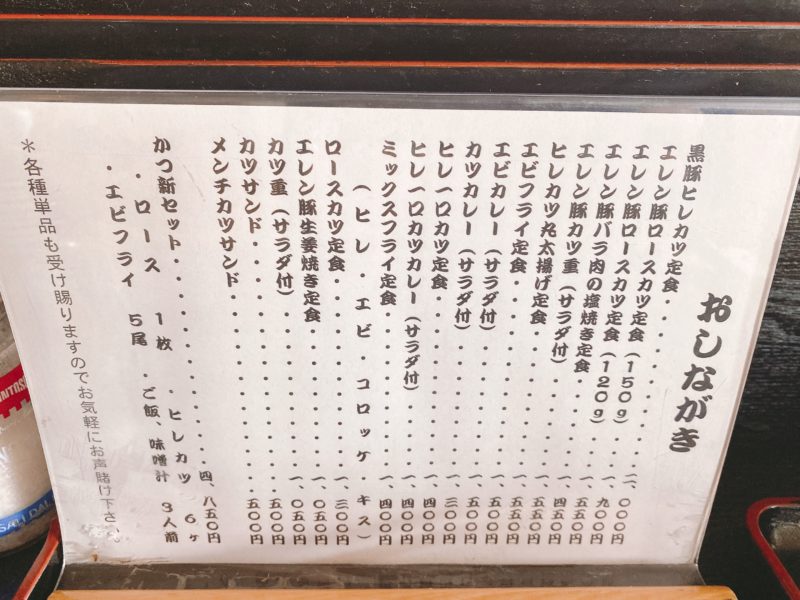 おしながき
黒豚ヒレカツ定食・・・・・・・・・二、〇〇〇円
エレン豚ロースカツ定食(150g)・・・一、九〇〇円
エレン豚ロースカツ定食(120g)・・・一、五五〇円
エレン豚バラ肉の塩焼き定食・・・・・一、四五〇円
エレン豚カツ重(サラダ付)・・・・・・一、五五〇円
ヒレカツ丸太揚げ定食・・・・・・・・一、五五〇円
エビフライ定食・・・・・・・・・・・一、五五〇円
エビカレー(サラダ付)・・・・・・・・一、五〇〇円
カツカレー(サラダ付)・・・・・・・・一、三〇〇円
ヒレ一口カツ定食・・・・・・・・・・一、四〇〇円
ヒレ一口カツカレー(サラダ付)・・・・一、四〇〇円
ミックスフライ定食・・・・・・・・・一、四〇〇円
(ヒレ・エビ・コロッケ・キス)
ロースカツ定食・・・・・・・・・・・一、三〇〇円
エレン豚生姜焼き定食・・・・・・・・一、〇五〇円
カツ重(サラダ付)・・・・・・・・・・一、〇五〇円
カツサンド・・・・・・・・・・・・・五〇〇円
メンチカツサンド・・・・・・・・・・五〇〇円
かつ新セット・・・・・・・・・・・・四、八五〇円
・ロース 1枚 ・ヒレカツ 6ヶ
・エビフライ 5尾 ・ご飯、味噌汁 3人前
*各種単品も受け賜りますのでお気軽にお声賭け下さい。